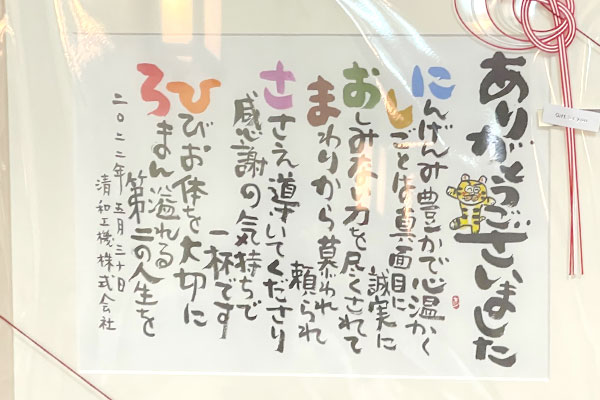 ありがとうございました
にんげんみ豊かで心温かく
しごとは真面目に
誠実に
おしみなく力を尽くされて
まわりから慕われ
頼られ
ささえ導いてくださり
感謝の気持ちで
一杯です
ひびお体を大切に
ろまん溢れる
第二の人生を
二〇二二年五月三十日
清和工機株式会社